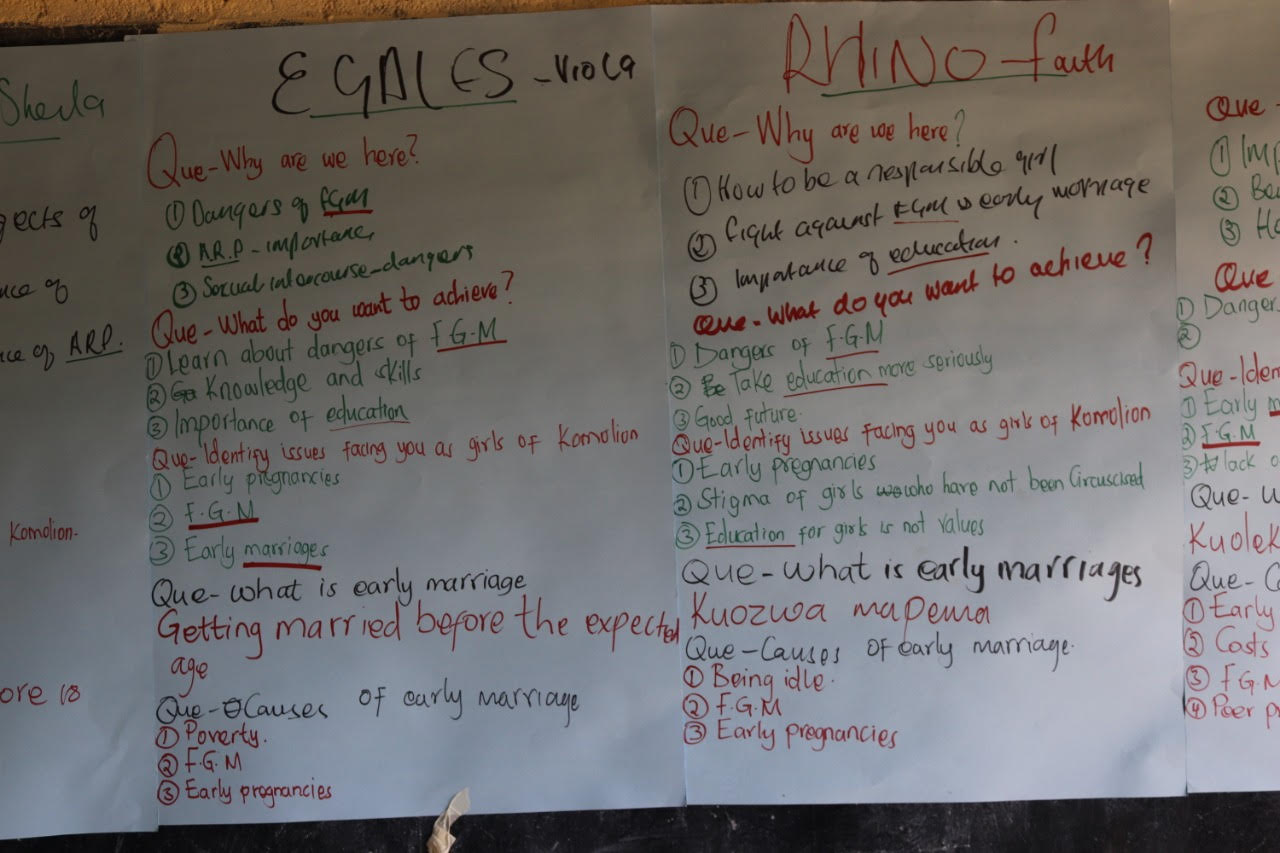 Sheila
ects of
ce of
ce of ARP.
Komolion.
ore 18
EGALES - Viola
Que - Why are we here?
① Dangers of FGM
② A.R.P - importance
③ Sexual intercourse - dangers
Que - What do you want to achieve?
① Learn about dangers of F.G.M
② Knowledge and skills
③ Importance of education
Que - Identify issues facing you as girls of Komolion
① Early pregnancies
② F.G.M
③ Early marriages
Que - what is early marriage
Getting married before the expected
age
Que - Causes of early marriage
① Poverty.
② F.G.M
③ Early pregnancies
RHINO - faith
Que - Why are we here?
① How to be a responsible girl
② fight against FGM & early marriage
③ Importance of education.
Que - What do you want to achieve?
① Dangers of F.G.M
② Take education more seriously
③ Good future.
Que - Identify issues facing you as girls of Komolion
① Early pregnancies
② Stigma of girls who have not been Circuscised
③ Education for girls is not values
Que - what is early marriages
Kuozwa mapema
Que - Causes of early marriage.
① Being idle.
② F.G.M
③ Early pregnancies
Que -
① Imp
② Be
③ Ho
Que
① Danger
②
Que - Iden
① Early m
② F.G.M
③ lack o
Que - w
Kuolek
Que - C
① Early
② Casts
③ F.G.M
④ Peer p